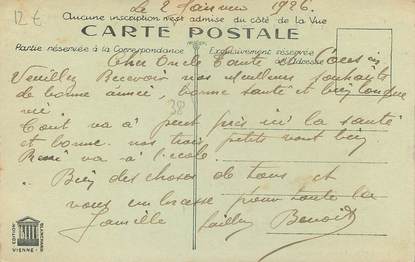 Le 2 Janvier 1926.
12€
Aucune inscription n'est admise du côté de la Vue
CARTE POSTALE
Partie réservée à la Correspondance
Exclusivement réservée
à l'Adresse
Cher Oncle Tante et Cousin
Veuillez Recevoir nos meilleurs souhaits
de bonne année, bonne santé et bien longue
vie.
38
Tout va à peut près ici la santé
et bonne. nos trois petits vont bien
René va à l'ecole.
Bien des choses de tous et
vous embrasse pour toute la
famille Benoit
EDITION
BLANCHARD
VIENNE